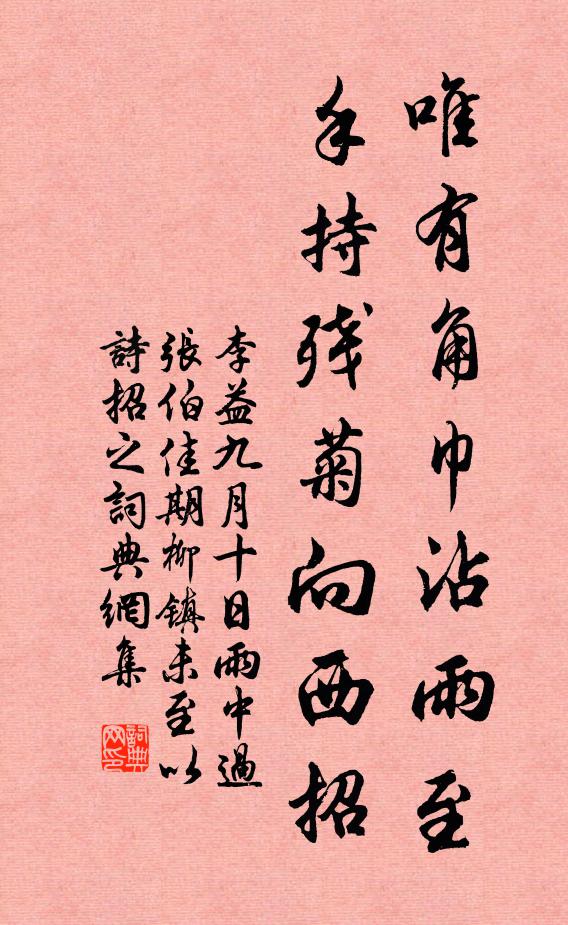 唯有角巾沾雨至
手持残菊向西招
李益九月十日雨中過
張伯佳期柳鎮未至以
詩招之詞典網集
詞典网印